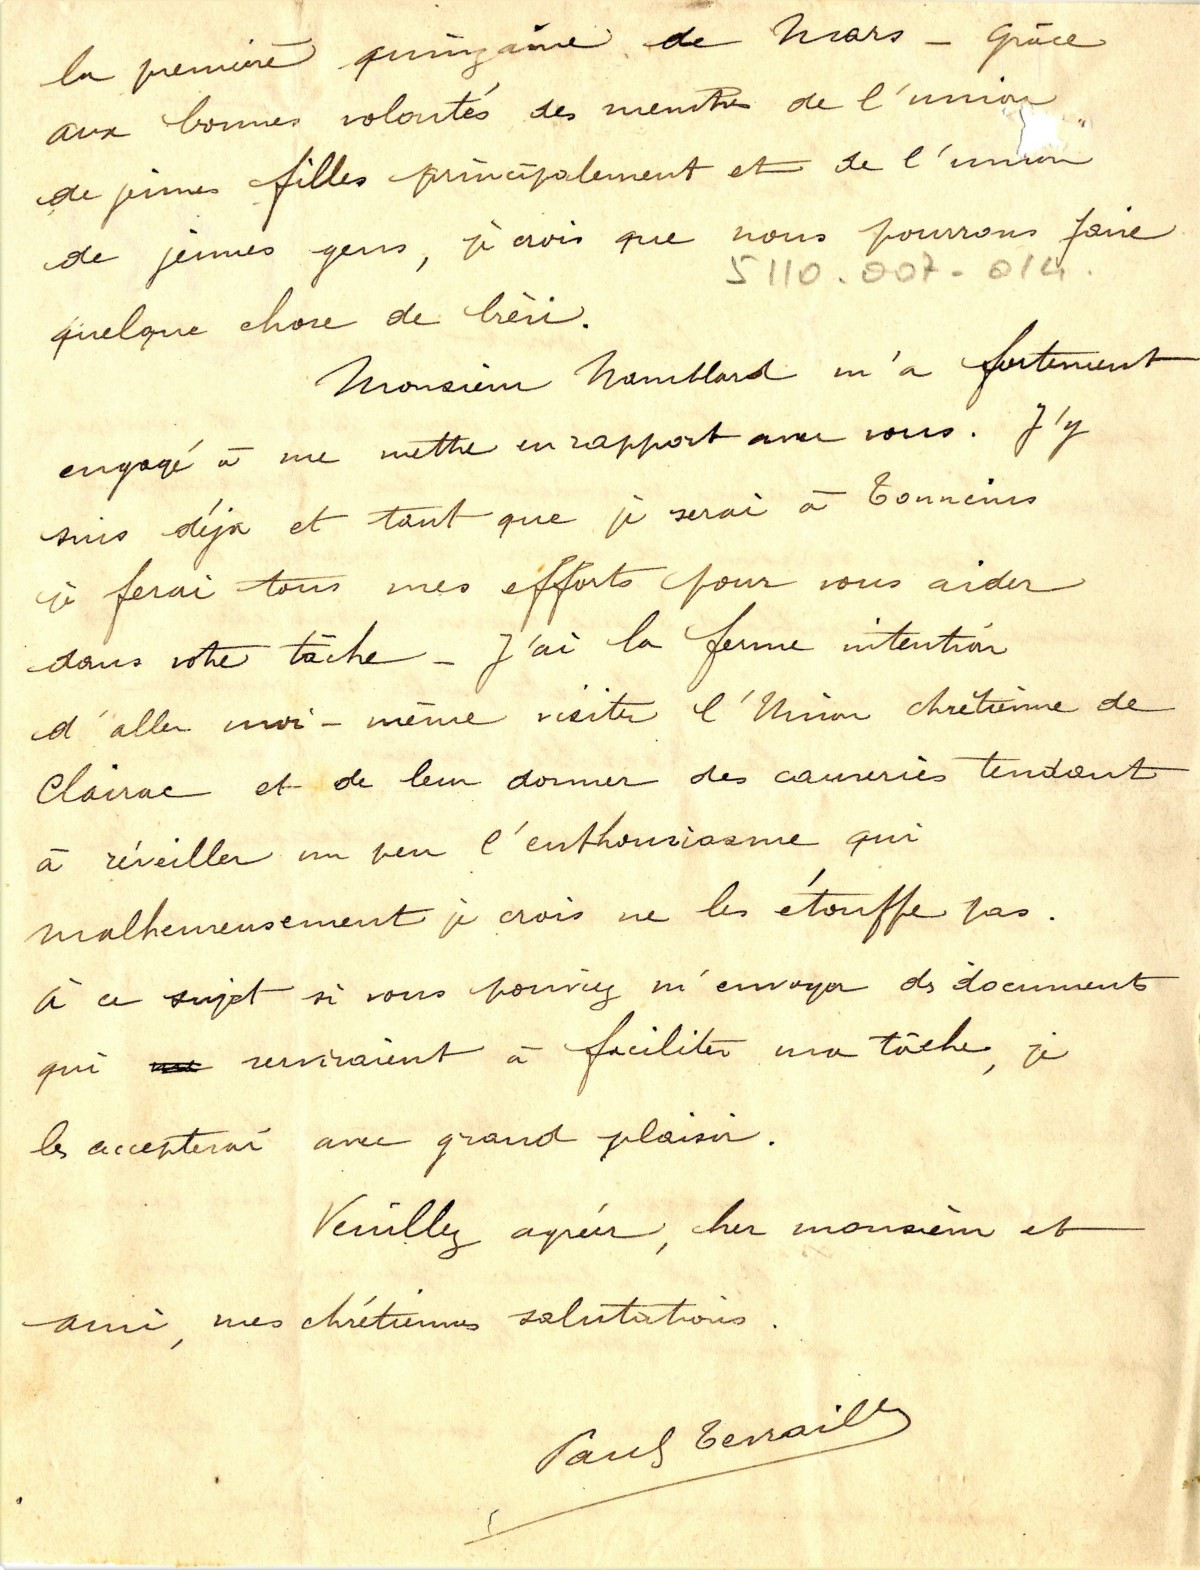 la première quinzaine de Mars – Grâce
aux bonnes volontés des membres de l'union
de jeunes filles principalement et de l'union
de jeunes gens, je crois que nous pourrons faire
5110.007-014.
quelque chose de bien.
Monsieur m'a fortement
engagé à me mettre en rapport avec vous. J'y
suis déjà et tant que je serai à Tonneins
je ferai tous mes efforts pour vous aider
dans votre tâche – J'ai la ferme intention
d'aller moi-même visiter l'Union chrétienne de
Clairac et de leur donner des causeries tendant
à réveiller un peu l'enthousiasme qui
malheureusement je crois ne les étouffe pas.
À ce sujet si vous pouviez m'envoyer des documents
qui serviraient à faciliter ma tâche, je
les accepterai avec grand plaisir.
Veuillez agréer, cher monsieur et
ami, mes chrétiennes salutations.
Paul